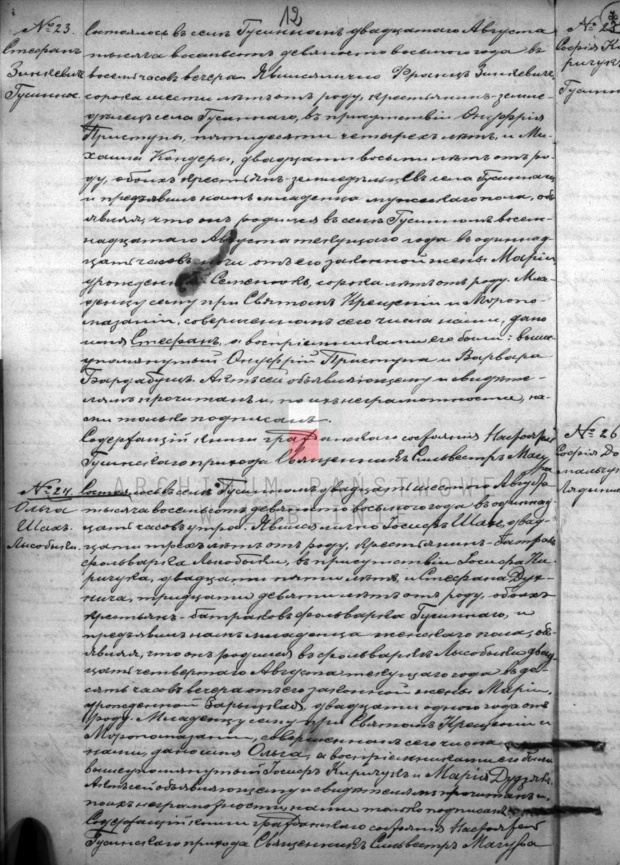 12
№ 23.
Стефанъ
Зинкевичъ
Гусинное.
Состоялось въ селѣ Гусинномъ двадцатаго Августа
тысяча восемьсотъ девяносто восьмого года въ
восемь часовъ вечера. Явился лично Францъ Зинкевичъ,
сорока шести лѣтъ отъ роду, крестьянинъ-земле-
дѣлецъ села Гусиннаго, въ присутствіи Онуфрія
Приступы, пятидесяти четырехъ лѣтъ и Ми-
хаила Кондеры, двадцати восьми лѣтъ отъ ро-
ду, обоихъ крестьянъ-земледѣльцевъ села Гусиннаго
и предъявилъ намъ младенца мужескаго пола, объ
являя, что онъ родился въ селѣ Гусинномъ восем-
надцатаго Августа текущаго года въ одиннад-
цать часовъ ночи отъ его законной жены Маріи
урожденной Семенюкъ, сорока лѣтъ отъ роду. Мла-
денцу сему при Святомъ Крещеніи и Мѵропо-
мазаніи, совершенномъ сего числа нами, дано
имя Стефанъ, а воспріемниками его были: выше
упомянутый Онуфрій Приступа и Варвара
Актъ сей объявляющему и свидѣте-
лямъ прочитанъ и, по ихъ неграмотности, на-
ми только подписанъ.
Содержащій книги гражданскаго состоянія Настоятель
Гусинскаго прихода Священникъ Сильвестръ
№ 24.
Ольга
Шахъ
Лысобыки.
Состоялось въ селѣ Гусинномъ двадцать Августа
тысяча восемьсотъ девяносто восьмого года въ одиннад-
цать часовъ утра. Явился лично Іосифъ Шахъ, двад-
цати трехъ лѣтъ отъ роду, крестьянинъ-батракъ
фольварка Лысобыки, въ присутствіи Іосифа Ки-
ричука, двадцати пяти лѣтъ, и Стефана
тридцати девяти лѣтъ отъ роду, обоихъ
крестьянъ-батраковъ фольварка Гусиннаго, и
предъявилъ намъ младенца женскаго пола, объ
являя, что онъ родился въ фольваркѣ Лысобыки двад
цать четвертаго Августа текущаго года въ де-
сять часовъ вечера отъ его законной жены Маріи,
урожденной двадцати одного года отъ
роду. Младенцу сему при Святомъ Крещеніи и
Мѵропомазаніи, совершенномъ сего числа
нами, дано имя Ольга, а воспріемниками его были
вышеупомянутый Іосифъ Киричукъ и Марія
Актъ сей объявляющему и свидѣтелямъ прочитанъ и,
по ихъ неграмотности, нами только подписанъ.
Содержащій книги гражданскаго состоянія Настоятель
Гусинскаго прихода Священникъ Сильвестръ
№ 25
Софія Ки
ричукъ
Гусинн
№ 26
Софія
ARCHIWUM PAŃSTWOWE
W LUBLINIE